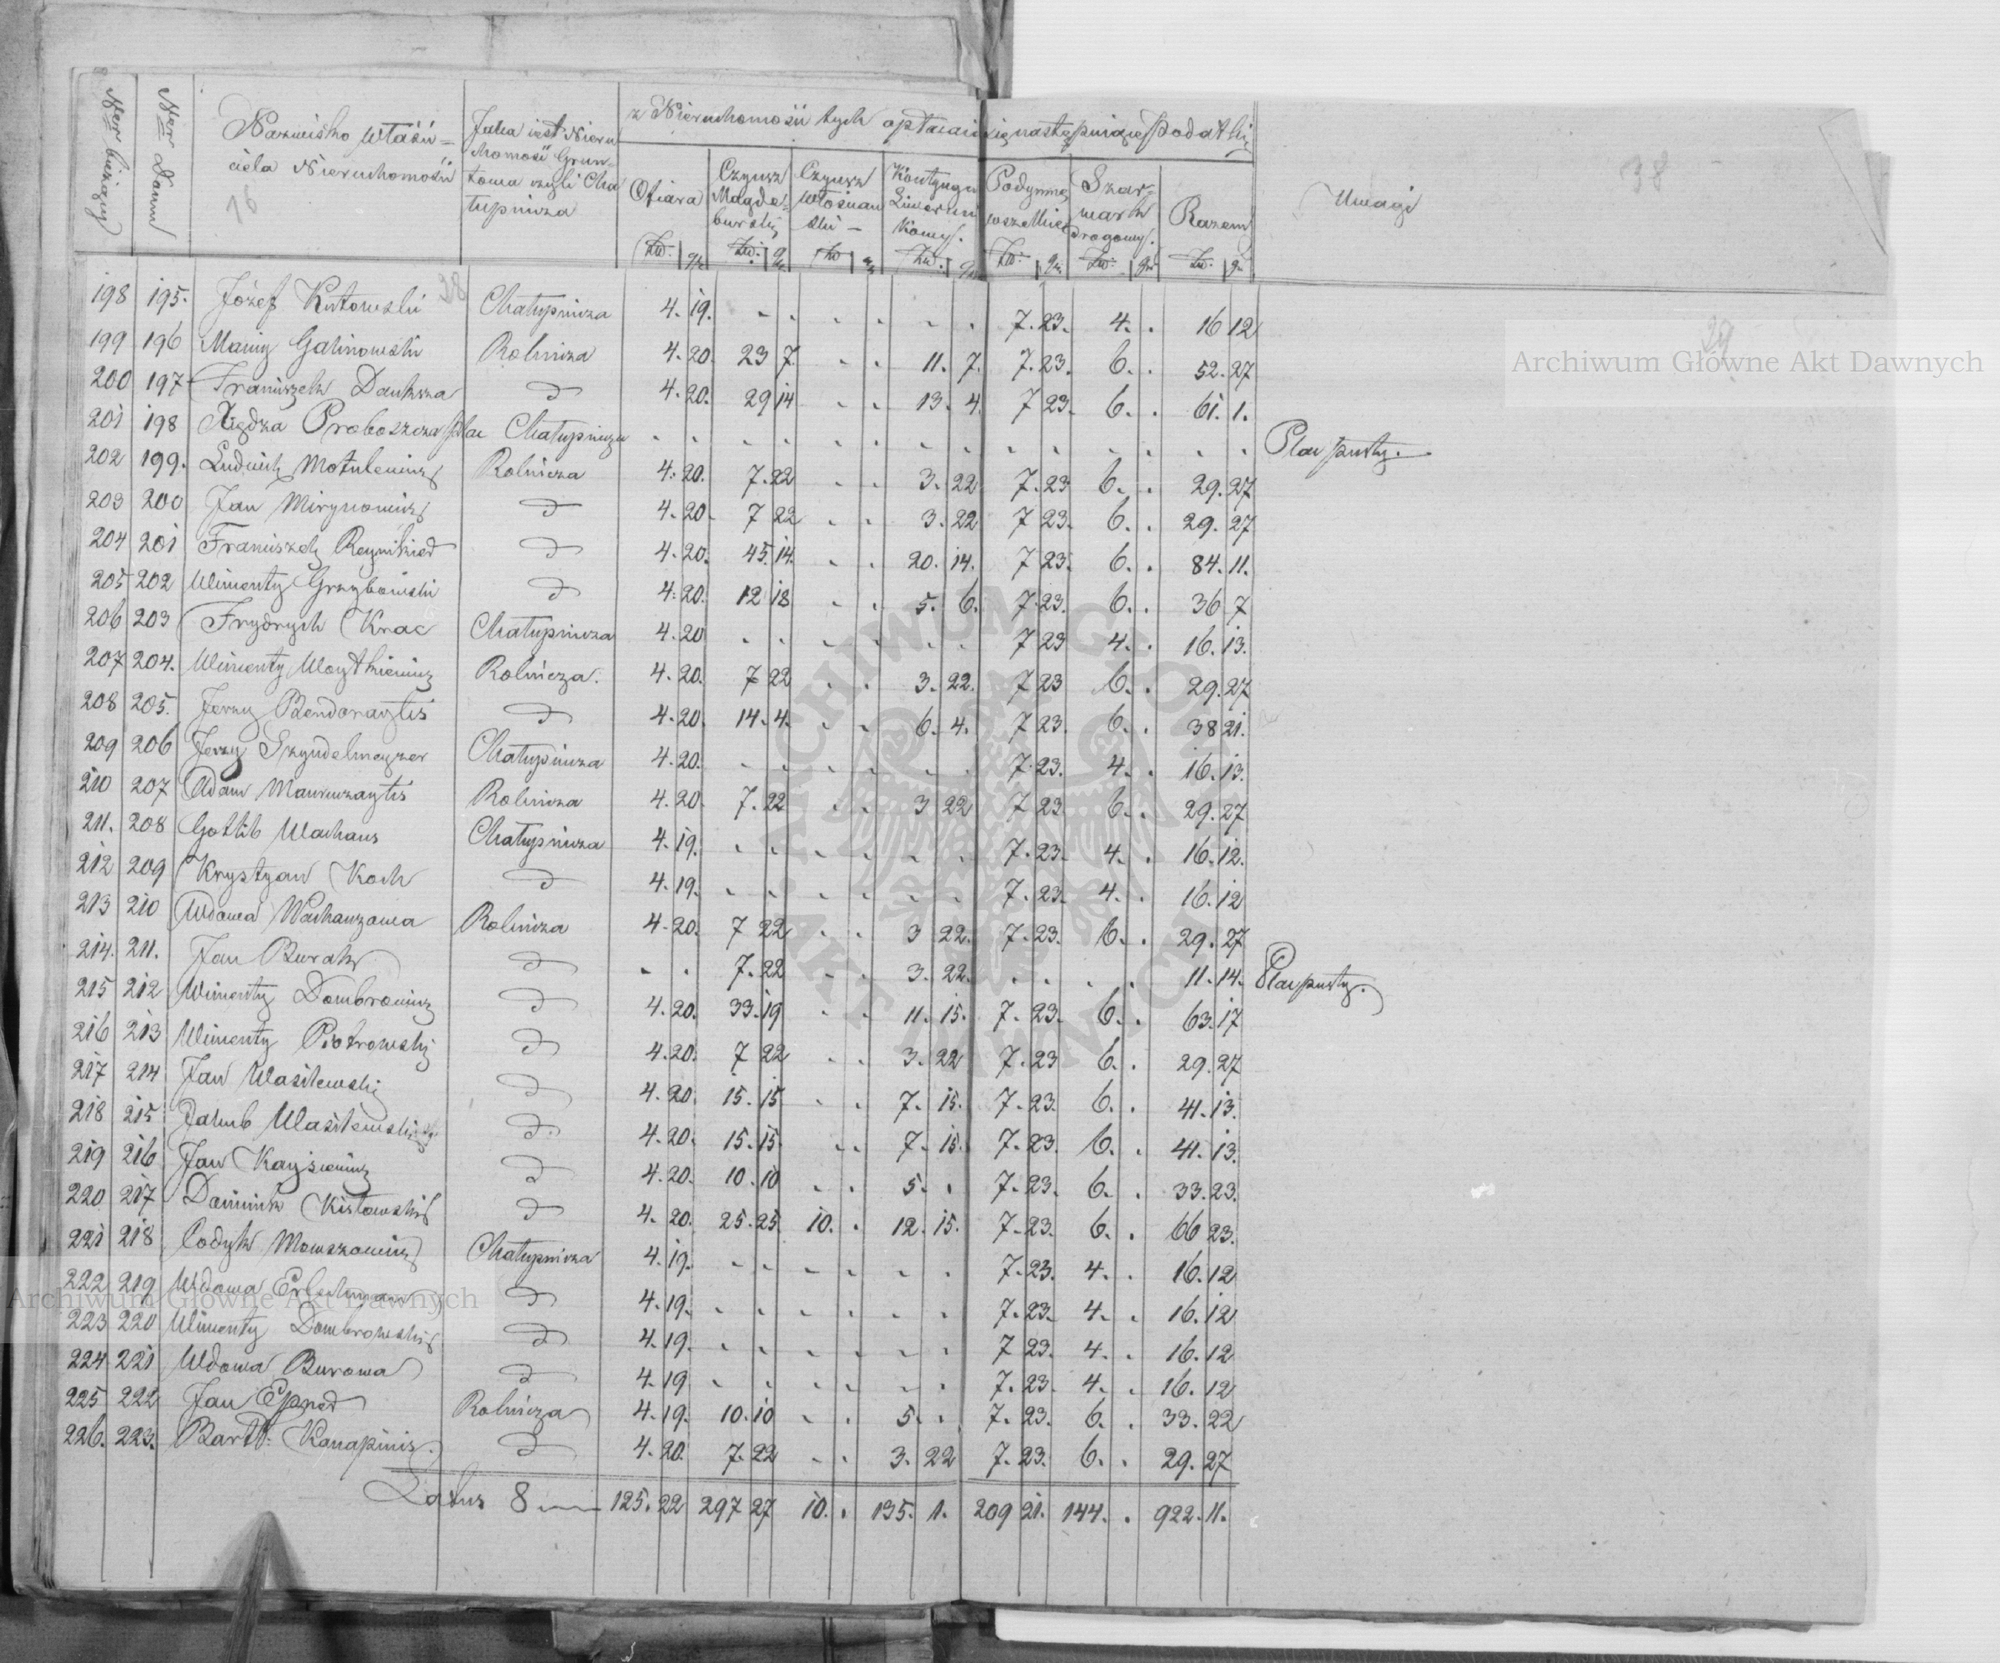 Ner bieżący | Ner Domu | Nazwisko Właści=ciela Nieruchomości | Jaka iest Nieruchomość Gruntowa czyli Chałupnicza | z Nieruchomości tych opłacaią się następuiące podatki | Uwagi
Ofiara | Czynsz Magdeburski | Czynsz Włościański | Kontyngn Liwerun Kowy. | Podymne wszelkie | Szarwark drogowy. | Razem
Zł. gr. | Zł. gr. | Zł. gr. | Zł. gr. | Zł. gr. | Zł. gr. | Zł. gr.
16
38
38
29
198 195. Józef Kutowski Chałupnicza 4. 19. - - - - - - 7. 23. 4. . 16 12
199 196 Maciey Galinowski Rolnicza 4. 20. 23 7. - - 11. 7. 7. 23. 6. . 52. 27
200 197 Franciszek Dauksza d 4. 20. 29 14 - - 13. 4. 7 23. 6. . 61. 1.
201 198 Xiędza Proboszcza plac Chałupnicza - - - - - - - - - - - - - - Plac pusty.
202 199. Ludwik Motulewicz Rolnicza 4. 20. 7. 22 - - 3. 22 7. 23 6. . 29. 27
203 200 Jan Mirynowicz d 4. 20. 7 22 - - 3. 22 7 23. 6. . 29. 27
204 201 Franciszek d 4. 20. 45. 14. - - 20. 14. 7 23. 6. . 84. 11.
205 202 Wincenty Grzybowski d 4. 20. 12 18 - - 5. 6. 7. 23. 6. . 36 7
206 203 Frydrych Krac Chałupnicza 4. 20 - - - - - - 7 23 4. . 16. 13.
207 204. Wincenty Woytkiewicz Rolnicza. 4. 20. 7 22 - - 3. 22. 7 23 6. . 29. 27
208 205. Jerzy Bendoraytis d 4. 20. 14. 4. - - 6. 4. 7 23. 6. . 38 21.
209 206 Jerzy Szyndelmeyzer Chałupnicza 4. 20. - - - - - - 7. 23. 4. . 16. 13.
210 207 Adam Maurucaytis Rolnicza 4. 20. 7. 22 - - 3 22 7 23 6. . 29. 27
211. 208 Gotlib Wachaus Chałupnicza 4. 19. - - - - - - 7. 23. 4. . 16. 12.
212 209 Krystyan Koch d 4. 19. - - - - - - 7. 23. 4. . 16. 12
213 210 Wdowa Wachauzowa Rolnicza 4. 20. 7 22 - - 3 22. 7. 23. 6. . 29. 27
214. 211. Jan Burak d - - 7. 22 - - 3. 22. . . . . 11. 14. Plac pusty.
215 212 Wincenty Dombrowicz d 4. 20. 33. 19 - - 11. 15. 7. 23. 6. . 63. 17
216 213 Wincenty Piotrowski d 4. 20. 7 22 - - 3. 22 7. 23 6. . 29. 27
217 214 Jan Wasilewski d 4. 20. 15. 15 - - 7. 15. 7. 23. 6. . 41. 13.
218 215 Jakub Wasilewski d 4. 20. 15. 15. - - 7. 15. 7. 23. 6. . 41. 13.
219 216 Jan Kaysiewicz d 4. 20. 10. 10 - - 5. . 7. 23. 6. . 33. 23.
220 217 Dominik Kistowski d 4. 20. 25. 25 10. . 12. 15. 7. 23. 6. . 66 23.
221 218 Codyk Mowszowicz Chałupnicza 4. 19. - - - - - - 7. 23. 4. . 16. 12
222 219 Wdowa d 4. 19. - - - - - - 7. 23. 4. . 16. 12
223 220 Wincenty Dombrowski d 4. 19. - - - - - - 7 23. 4. . 16. 12
224 221 Wdowa Burowa d 4. 19 - - - - - - 7. 23. 4. . 16. 12
225 222 Jan Rolnicza 4. 19. 10. 10 - - 5. . 7. 23. 6. . 33. 22
226. 223. Bartł: Kanapinis. d 4. 20. 7. 22 - - 3. 22 7. 23. 6. . 29. 27
Latus 8 125. 22 297 27 10. . 135. 1. 209 21. 144. . 922. 11.
Archiwum Główne Akt Dawnych
Archiwum Główne Akt Dawnych
ARCHIWUM GŁÓWNE AKT DAWNYCH